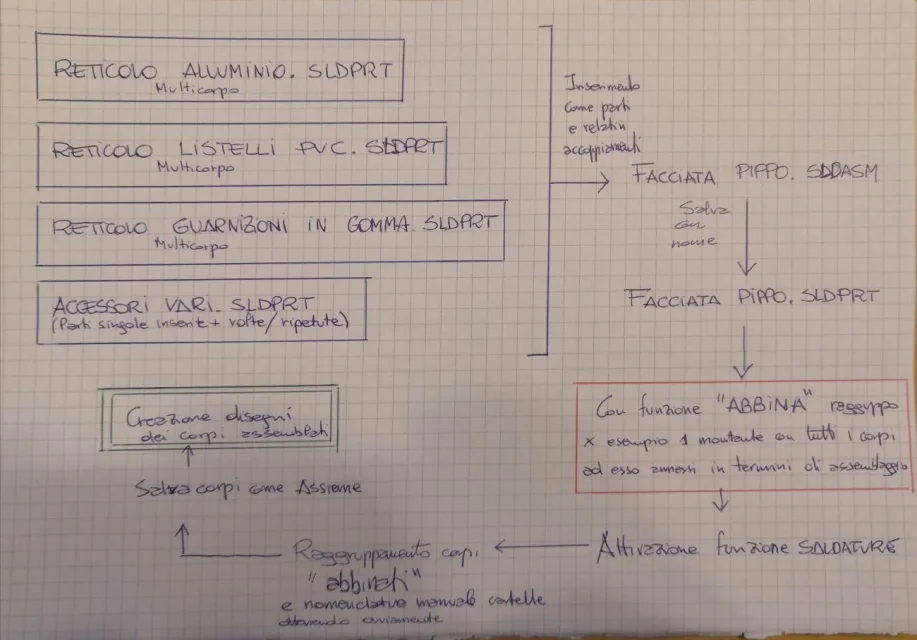 RETICOLO ALLUMINIO. SLDPRT
Multicorpo
RETICOLO LISTELLI PVC. SLDPRT
Multicorpo
RETICOLO GUARNIZIONI IN GOMMA. SLDPRT
Multicorpo
ACCESSORI VARI. SLDPRT
(Parti singole inserite + volte/ripetute)
Inserimento
Come parti
e relativi
accoppiamenti
FACCIATA PIPPO. SLDASM
Salva
con
nome
FACCIATA PIPPO. SLDPRT
Con funzione "ABBINA" raggruppo
x esempio 1 montante con tutti i corpi
ad esso annessi in termini di assemblaggio
Attivazione funzione SALDATURE
Raggruppamento corpi
"abbinati"
e nomenclatura manuale cartelle
ovviamente
Salva corpi come Assieme
Creazione disegni
dei corpi assemblati